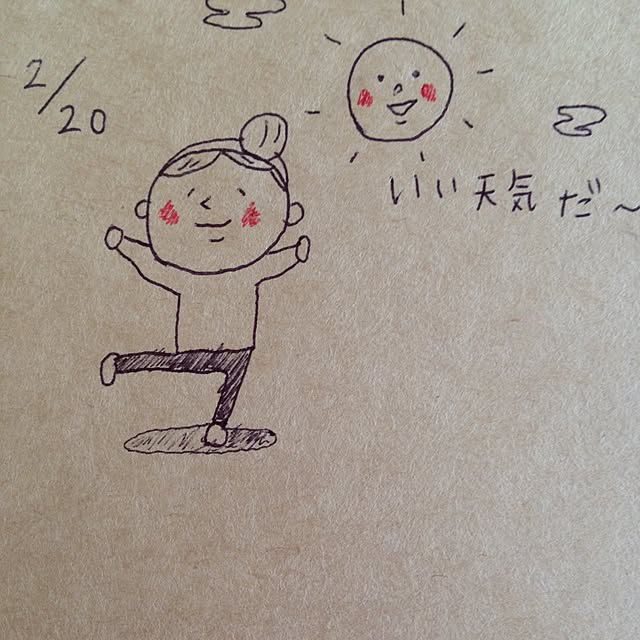 2/20
いい天気だ〜